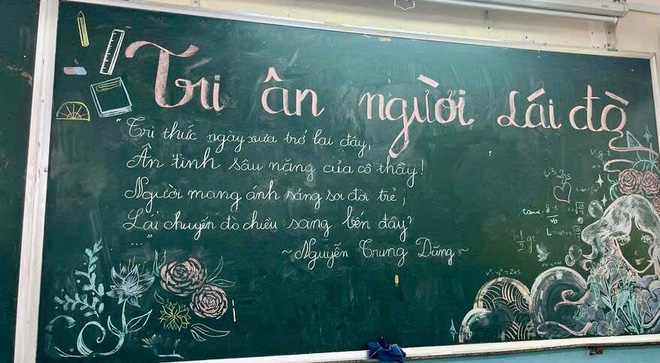 Tri ân người lái đò
"Tri thức ngày xưa trở lại đây,
Ân tình sâu nặng của cô thầy!
Người mang ánh sáng soi đời trẻ,
Lái chuyến đò chiều sang bến đây?
..."
~ Nguyễn Trung Dũng ~